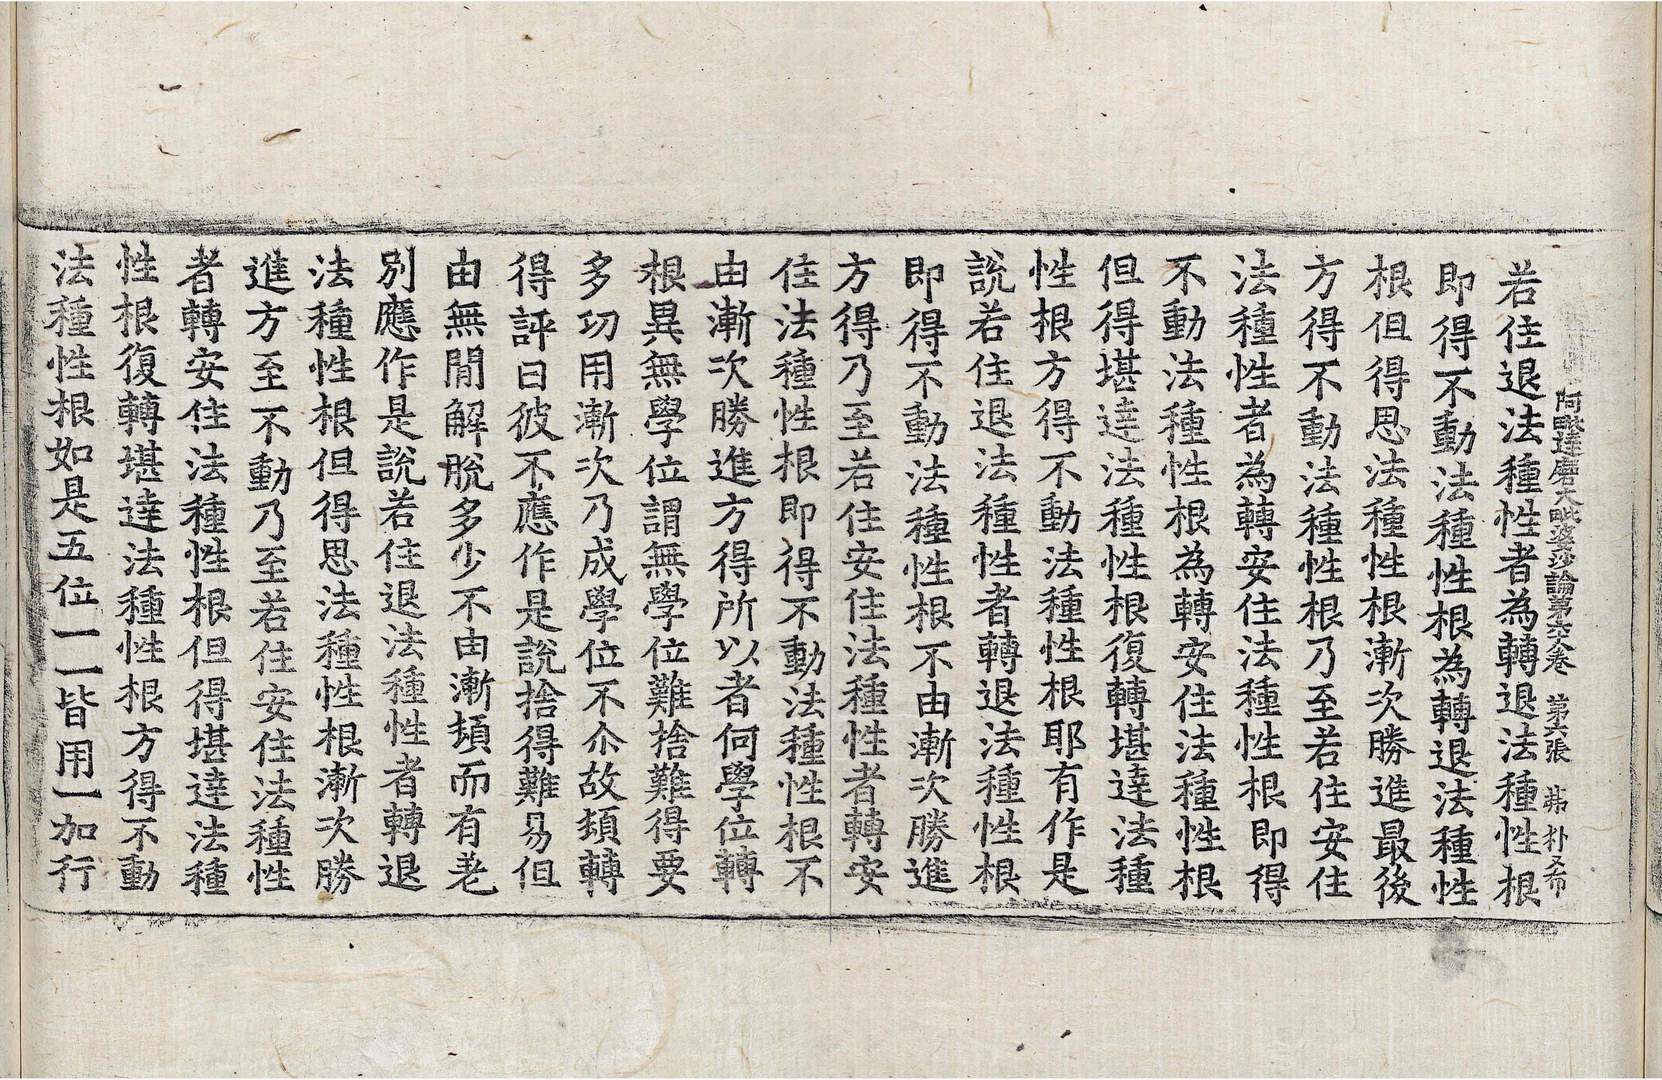 阿毗達磨大毗婆沙論第六八卷 第 張 朴又布
若住退法種性者為轉退法種性根
即得不動法種性根為轉退法種性
根但得思法種性根漸次勝進最後
方得不動法種性根乃至若住安住
法種性者為轉安住法種性根即得
不動法種性根為轉安住法種性根
但得堪達法種性根復轉堪達法種
性根方得不動法種性根耶有作是
說若住退法種性者轉退法種性根
即得不動法種性根不由漸次勝進
方得乃至若住安住法種性者轉安
住法種性根即得不動法種性根不
由漸次勝進方得所以者何學位轉
根異無學位謂無學位難捨難得要
多功用漸次乃成學位不尒故頓轉
得評曰彼不應作是說捨得難易但
由無閒解脫多少不由漸頓而有差
別應作是說若住退法種性者轉退
法種性根但得思法種性根漸次勝
進方至不動乃至若住安住法種性
者轉安住法種性根但得堪達法種
性根復轉堪達法種性根方得不動
法種性根如是五位一一皆用一加行